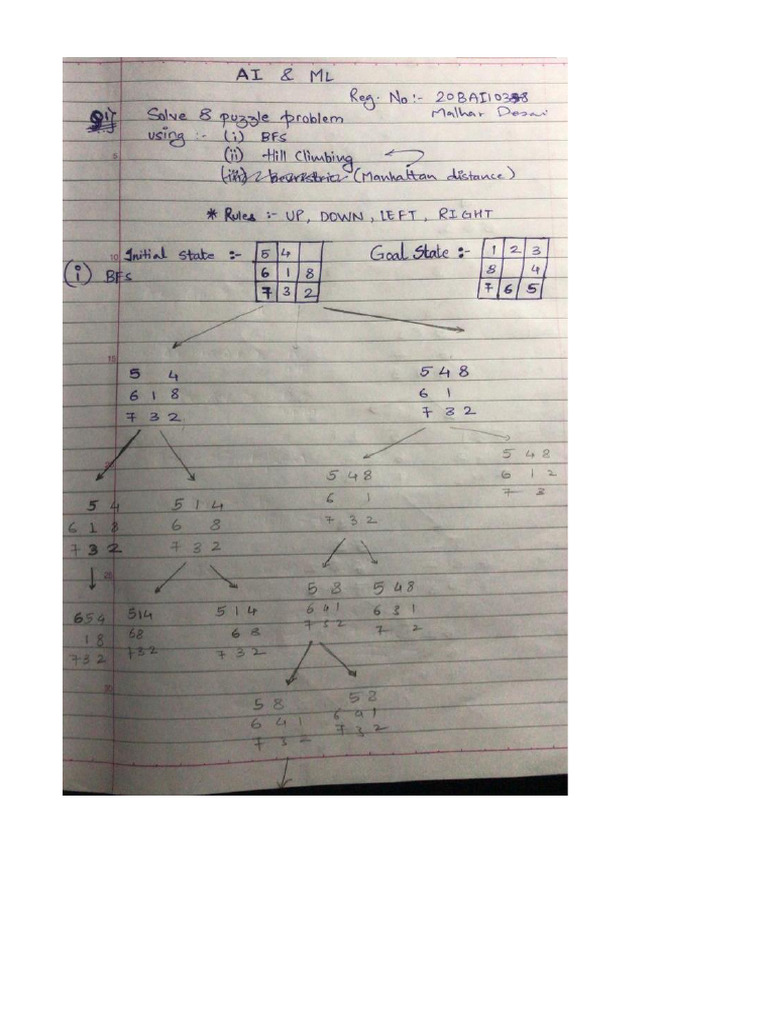 AI & ML
Reg. No:- 20BAI10338
Malhar Desai
Q1) Solve 8 puzzle problem
using :- (i) BFS
(ii) Hill Climbing
(iii) heuristic (Manhattan distance)
* Rules :- UP, DOWN, LEFT, RIGHT
(i) BFS
Initial state :-
5 4
6 1 8
7 3 2
Goal State :-
1 2 3
8 4
7 6 5
5 4
6 1 8
7 3 2
5 4 8
6 1
7 3 2
5 4
6 1 8
7 3 2
5 1 4
6 8
7 3 2
5 4 8
6 1
7 3 2
5 4 8
6 1 2
7 3
6 5 4
1 8
7 3 2
5 1 4
6 8
7 3 2
5 1 4
6 8
7 3 2
5 8
6 4 1
7 3 2
5 4 8
6 3 1
7 2
5 8
6 4 1
7 3 2
5 8
6 4 1
7 3 2